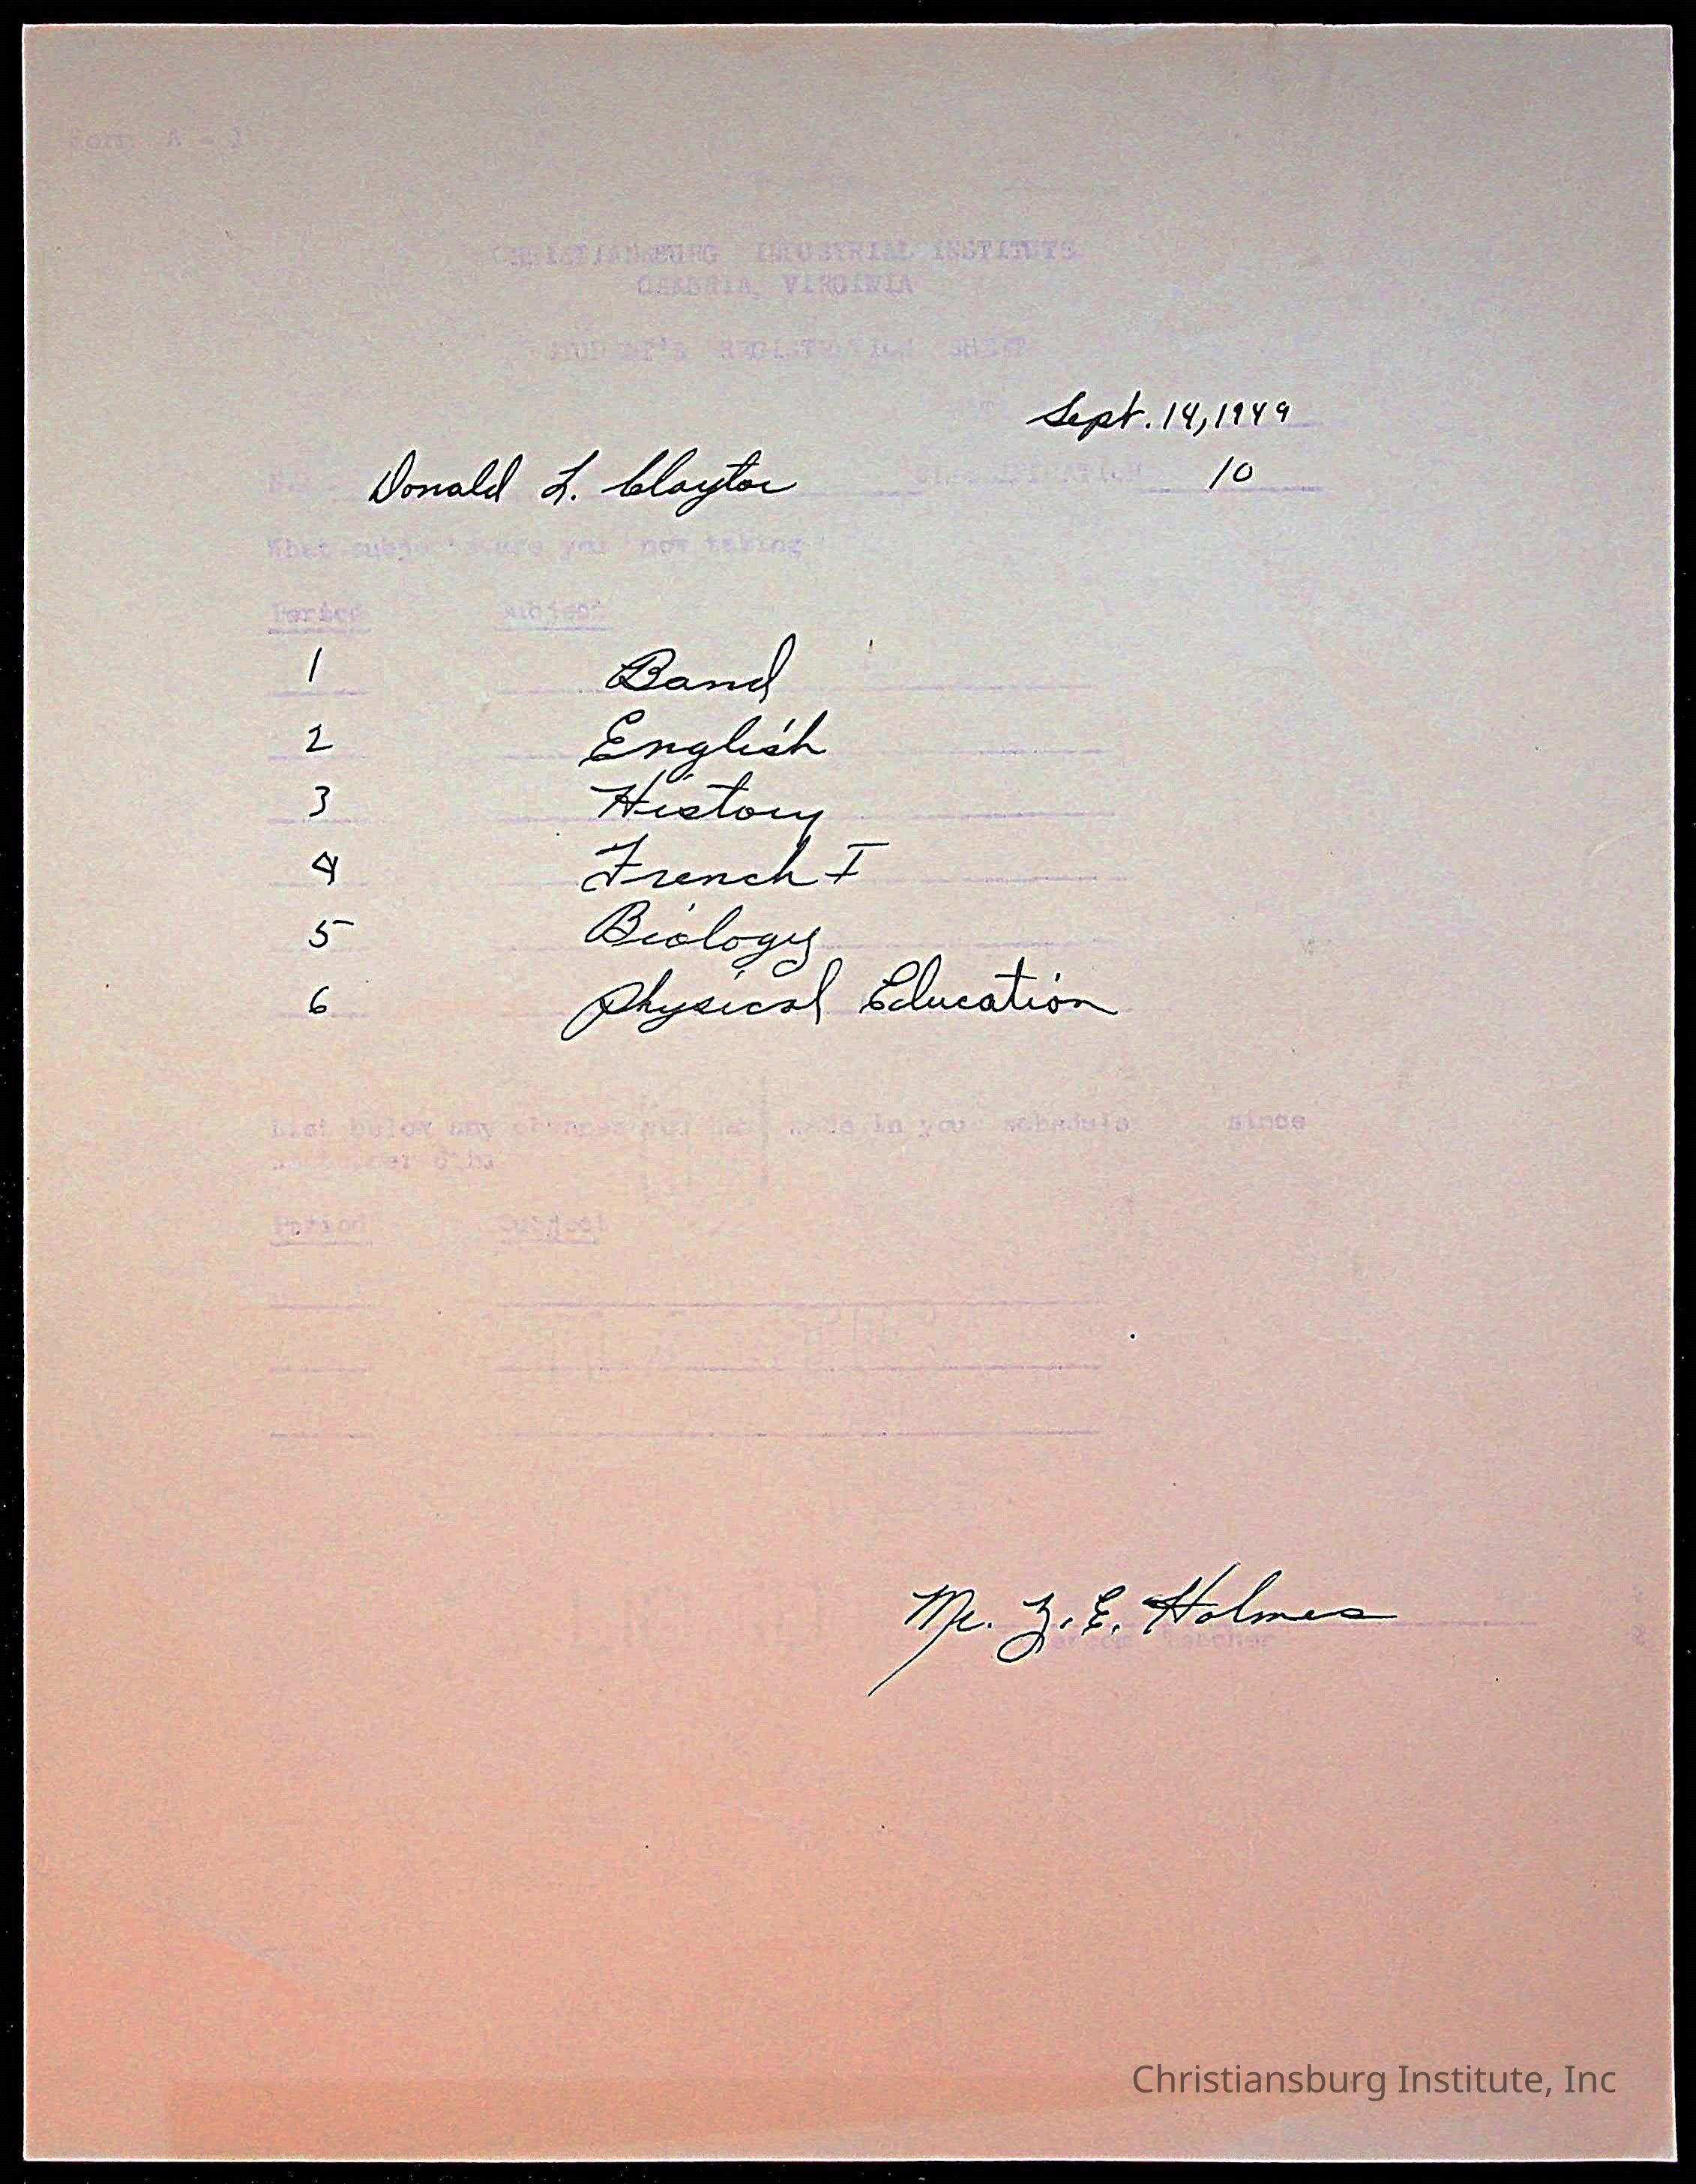 Form A - 1
CHRISTIANSBURG INDUSTRIAL INSTITUTE
CAMBRIA, VIRGINIA
STUDENT'S REGISTRATION SHEET
Sept. 14, 1949
Donald L. Claytor CLASSIFICATION 10
What subjects are you now taking
Period Subject
1 Band
2 English
3 History
4 French I
5 Biology
6 Physical Education
List below any changes you have made in your schedule since
Period Subject
Mr. Z. E. Holmes
Teacher
Christiansburg Institute, Inc